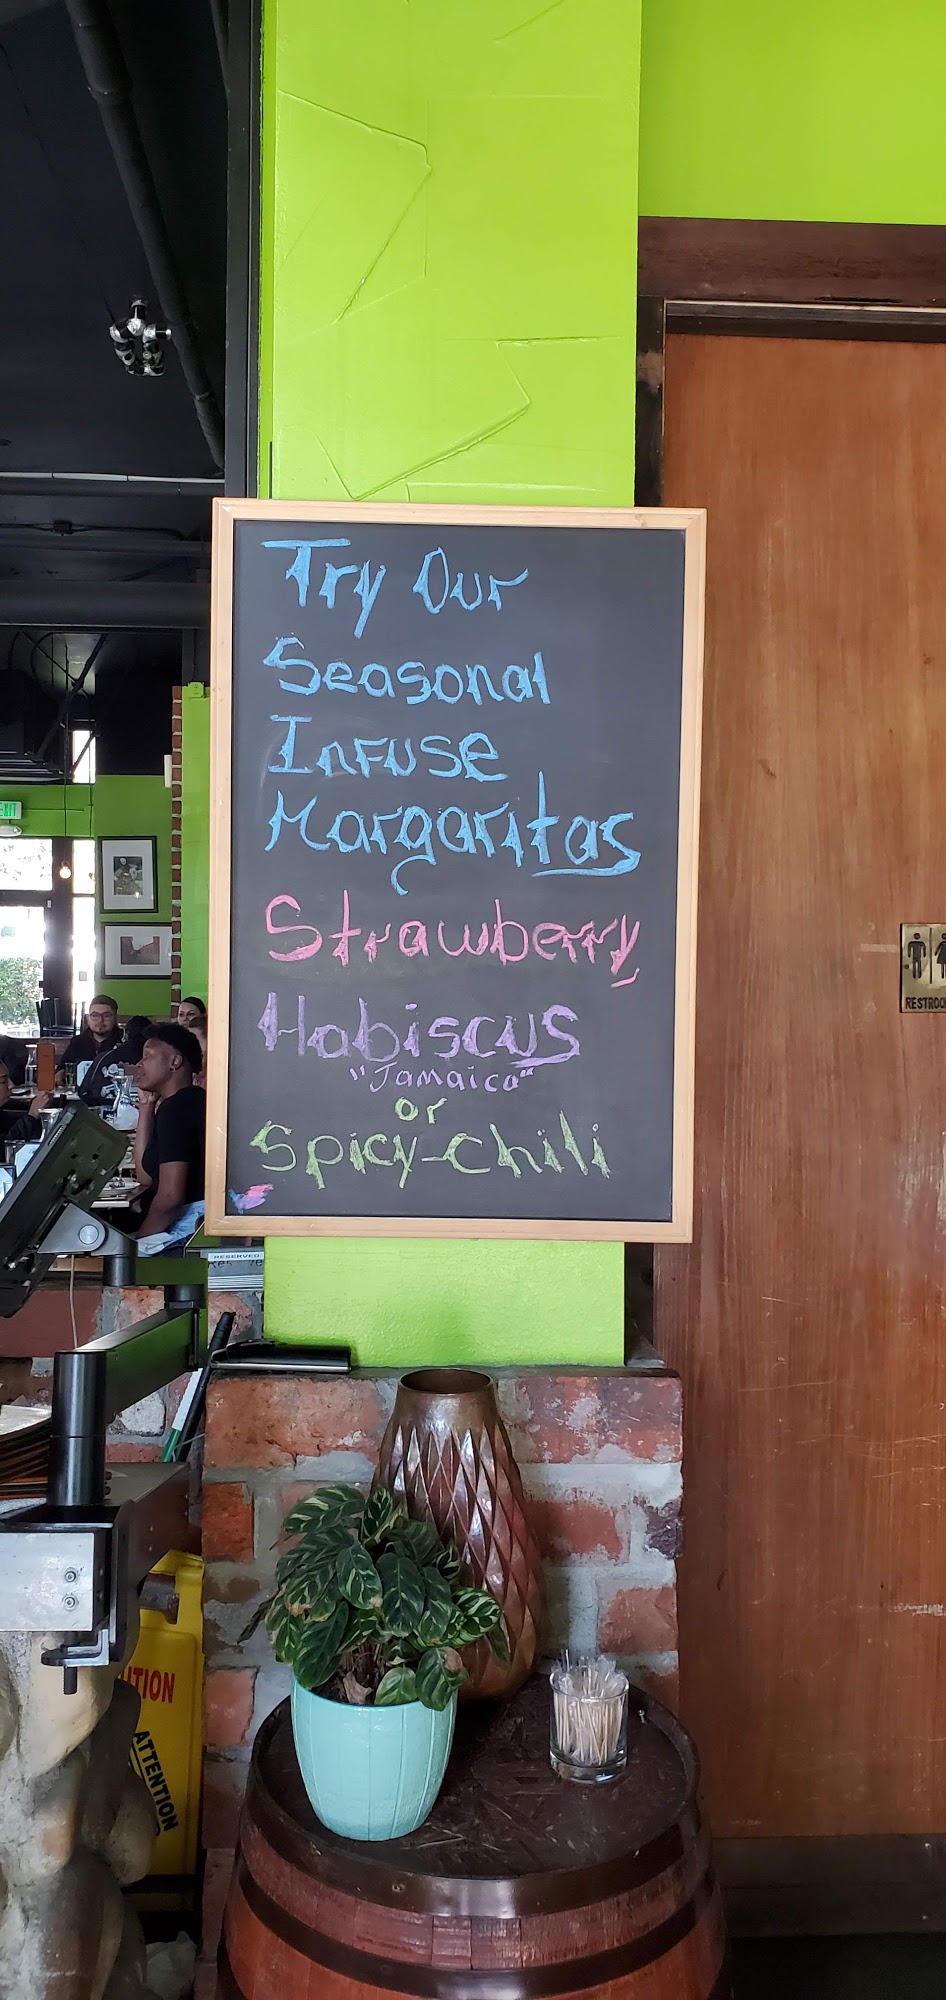 Try Our
Seasonal
Infuse
Margaritas
Strawberry
Habiscus
"Jamaica"
or
Spicy-chili
EXIT
RESTROO
RESERVED
UTION
ATTENTION